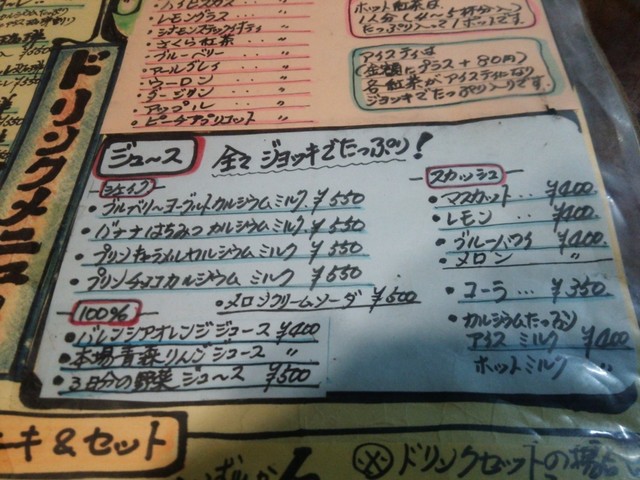 ドリンクメニュー
ハイビスカス 〃
レモングラス 〃
シナモンスティックティ 〃
さくら紅茶 ‥ 〃
ブルーベリー ‥ 〃
アールグレイ ‥ 〃
ウーロン ‥ 〃
ダージリン ‥ 〃
アップル ‥ 〃
ピーチアプリコット 〃
ホット紅茶は
たっぷり入って1ポットです。
アイスティは
(金額にプラス+80円)
各紅茶がアイスティになり
ジョッキでたっぷり入りです。
ジュース 全てジョッキでたっぷり!
シェイク
・ブルーベリーヨーグルトカルシウムミルク ¥550
・バナナはちみつカルシウムミルク ¥550
・プリンキャラメルカルシウムミルク ¥550
・プリンチョコカルシウムミルク ¥550
・メロンクリームソーダ ¥500
100%
・バレンシアオレンジジュース ¥400
・本場青森りんごジュース 〃
・3日分の野菜ジュース ¥500
スカッシュ
・マスカット‥ ¥400
・レモン ‥ ¥400
・ブルーハワイ ¥400
・メロン 〃
・コーラ ‥ ¥350
・カルシウムたっぷり
アイスミルク ¥400
ホットミルク 〃
ーキ&セット
ドリンクセットの場合